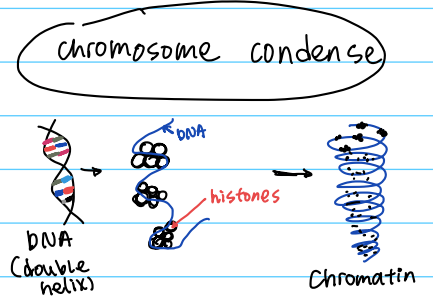 chromosome condense
DNA
histones
DNA
(double
helix)
Chromatin